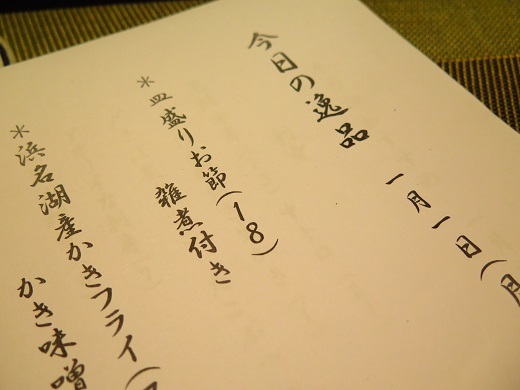 今日の逸品
一月一日(月
＊皿盛りお節(18)
雑煮付き
＊浜名湖産かきフライ(
かき味噌